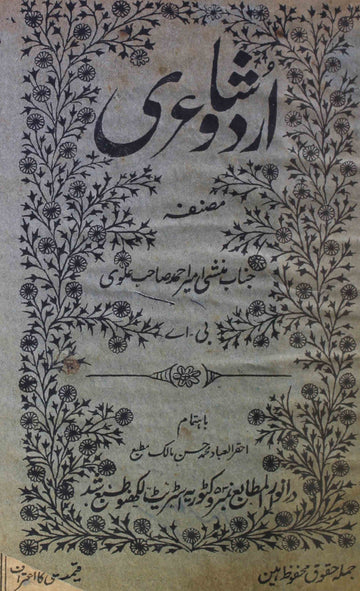 اُردو شاعری
مصنفہ
جناب منشی امیر احمد صاحب علوی
بی۔ اے
باہتمام
احقر العباد محمد حسن مالک مطبع
در انوار المطابع نمبر وکٹوریہ اسٹریٹ لکھنؤ طبع شد
جملہ حقوق محفوظ ہین
قیمت